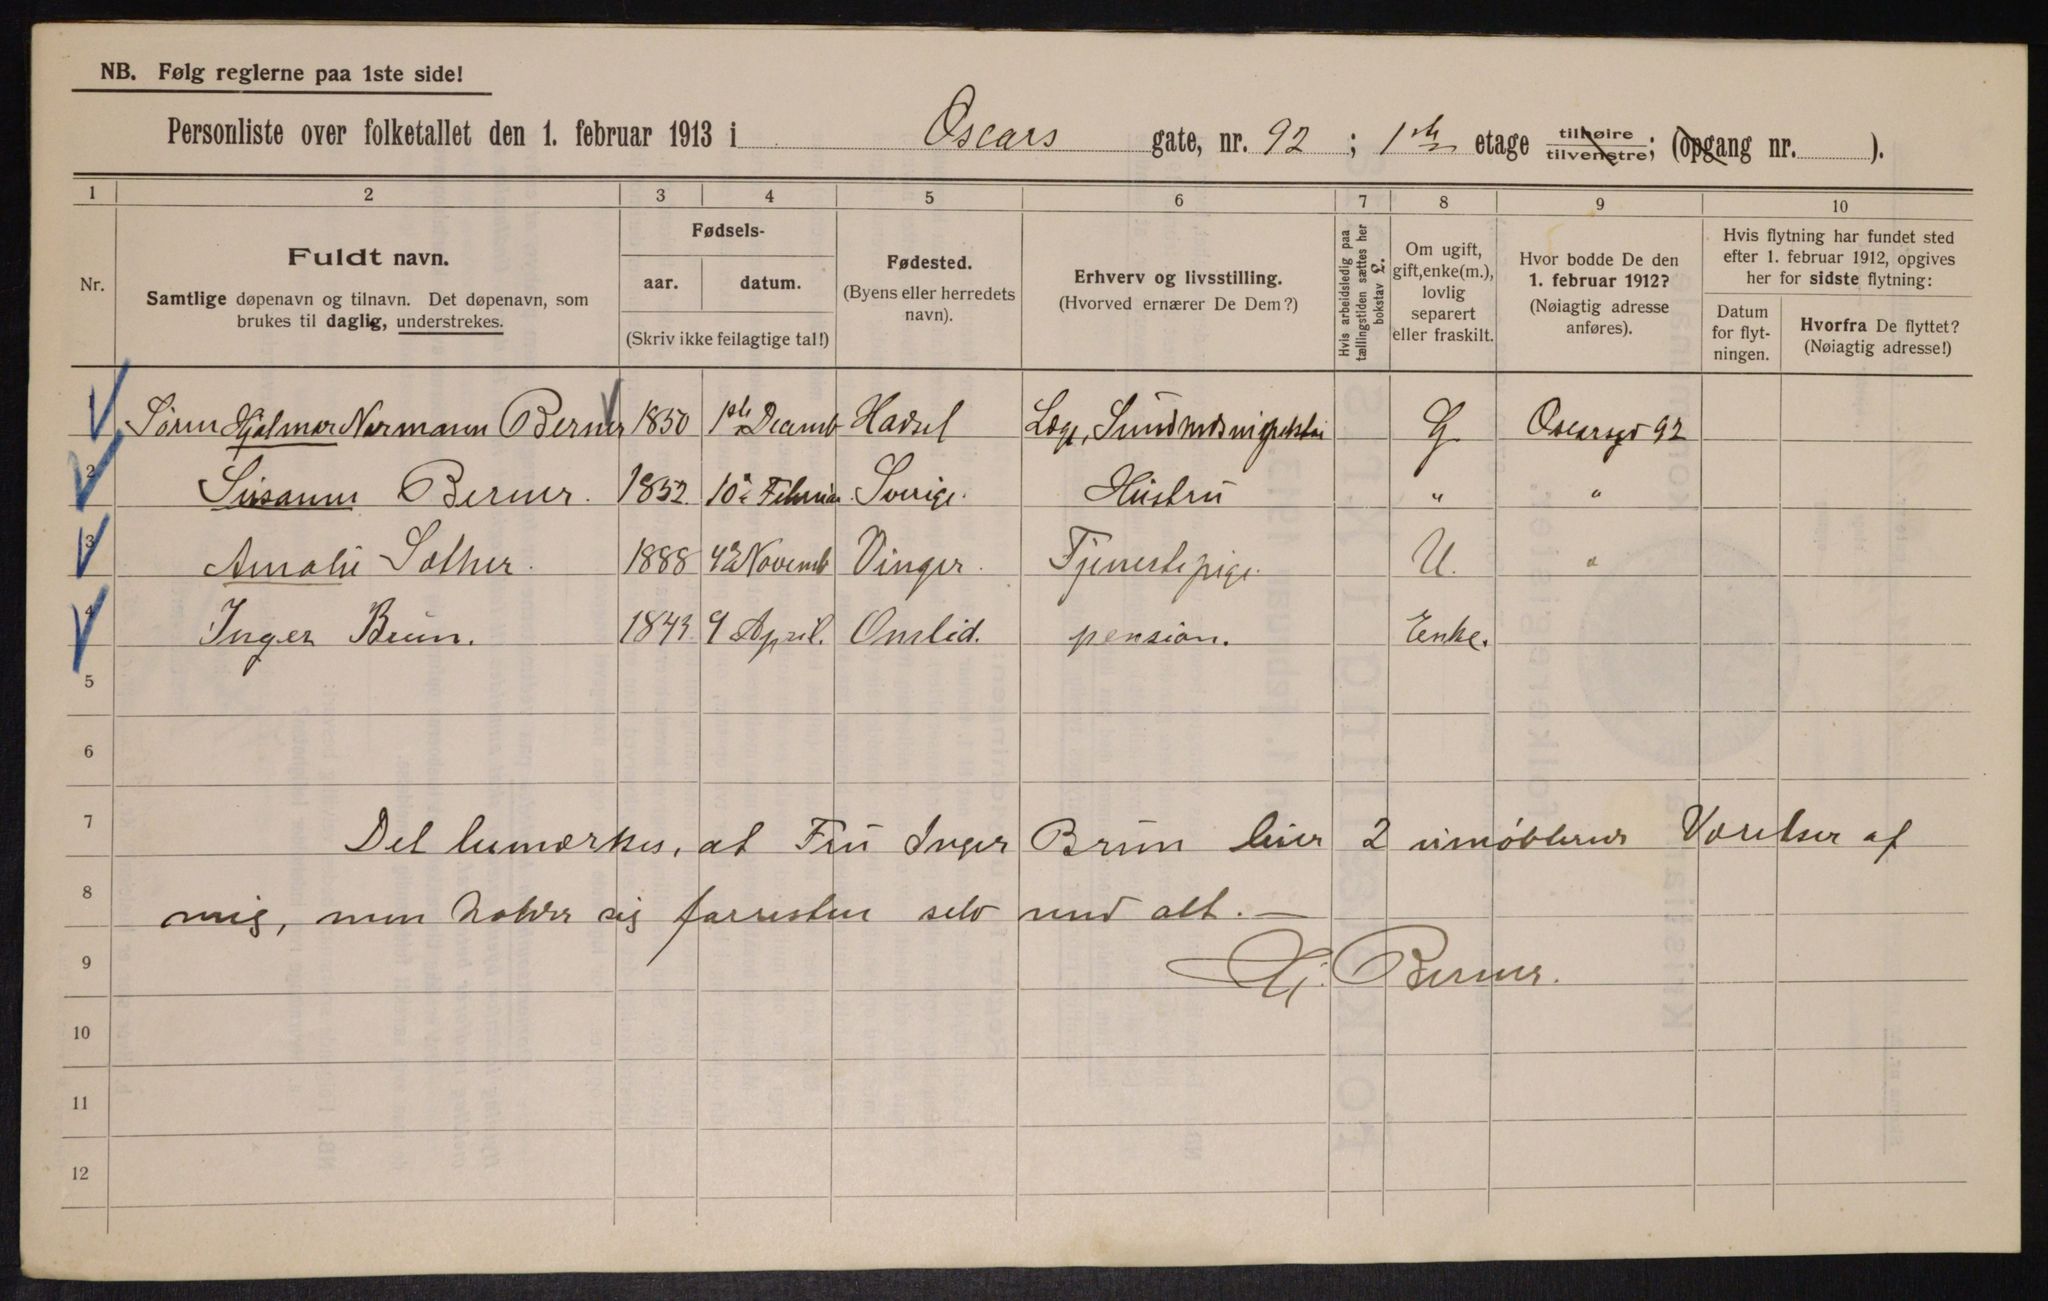 NB. Følg reglerne paa 1ste side!
Personliste over folketallet den 1. februar 1913 i Oscars gate, nr. 92; 1ste etage tilhøire tilvenstre; (opgang nr. ).
1 2 3 4 5 6 7 8 9 10
Nr.
Fuldt navn.
Samtlige døpenavn og tilnavn. Det døpenavn, som
brukes til daglig, understrekes.
Fødsels-
aar. datum.
(Skriv ikke feilagtige tal!)
Fødested.
(Byens eller herredets
navn).
Erhverv og livsstilling.
(Hvorved ernærer De Dem?)
Hvis arbeidsledig paa
tællingstiden sættes her
bokstav L.
Om ugift,
gift, enke(m.),
lovlig
separert
eller fraskilt.
Hvor bodde De den
1. februar 1912?
(Nøiagtig adresse
anføres).
Hvis flytning har fundet sted
efter 1. februar 1912, opgives
her for sidste flytning:
Datum
for flyt-
ningen.
Hvorfra De flyttet?
(Nøiagtig adresse!)
Søren Hjalmar Normann Berner 1850 1ste Decemb Hadsel Læge, Sundhedsinspektør G Oscarsgd 92
2 Susanne Berner. 1852 10de Februar. Sverige. Hustru " "
3 Amalie Sother. 1888 4de Novemb Vinger. Tjenestepige. U. "
4 Inger Brun. 1843 9 April. Omlid. pension. Enke.
5
6
7 Det bemærkes, at Fru Inger Brun leier 2 umøblerede Værelser af
8 mig, men holder sig forresten selv med alt. —
9 Hj. Berner.
10
11
12